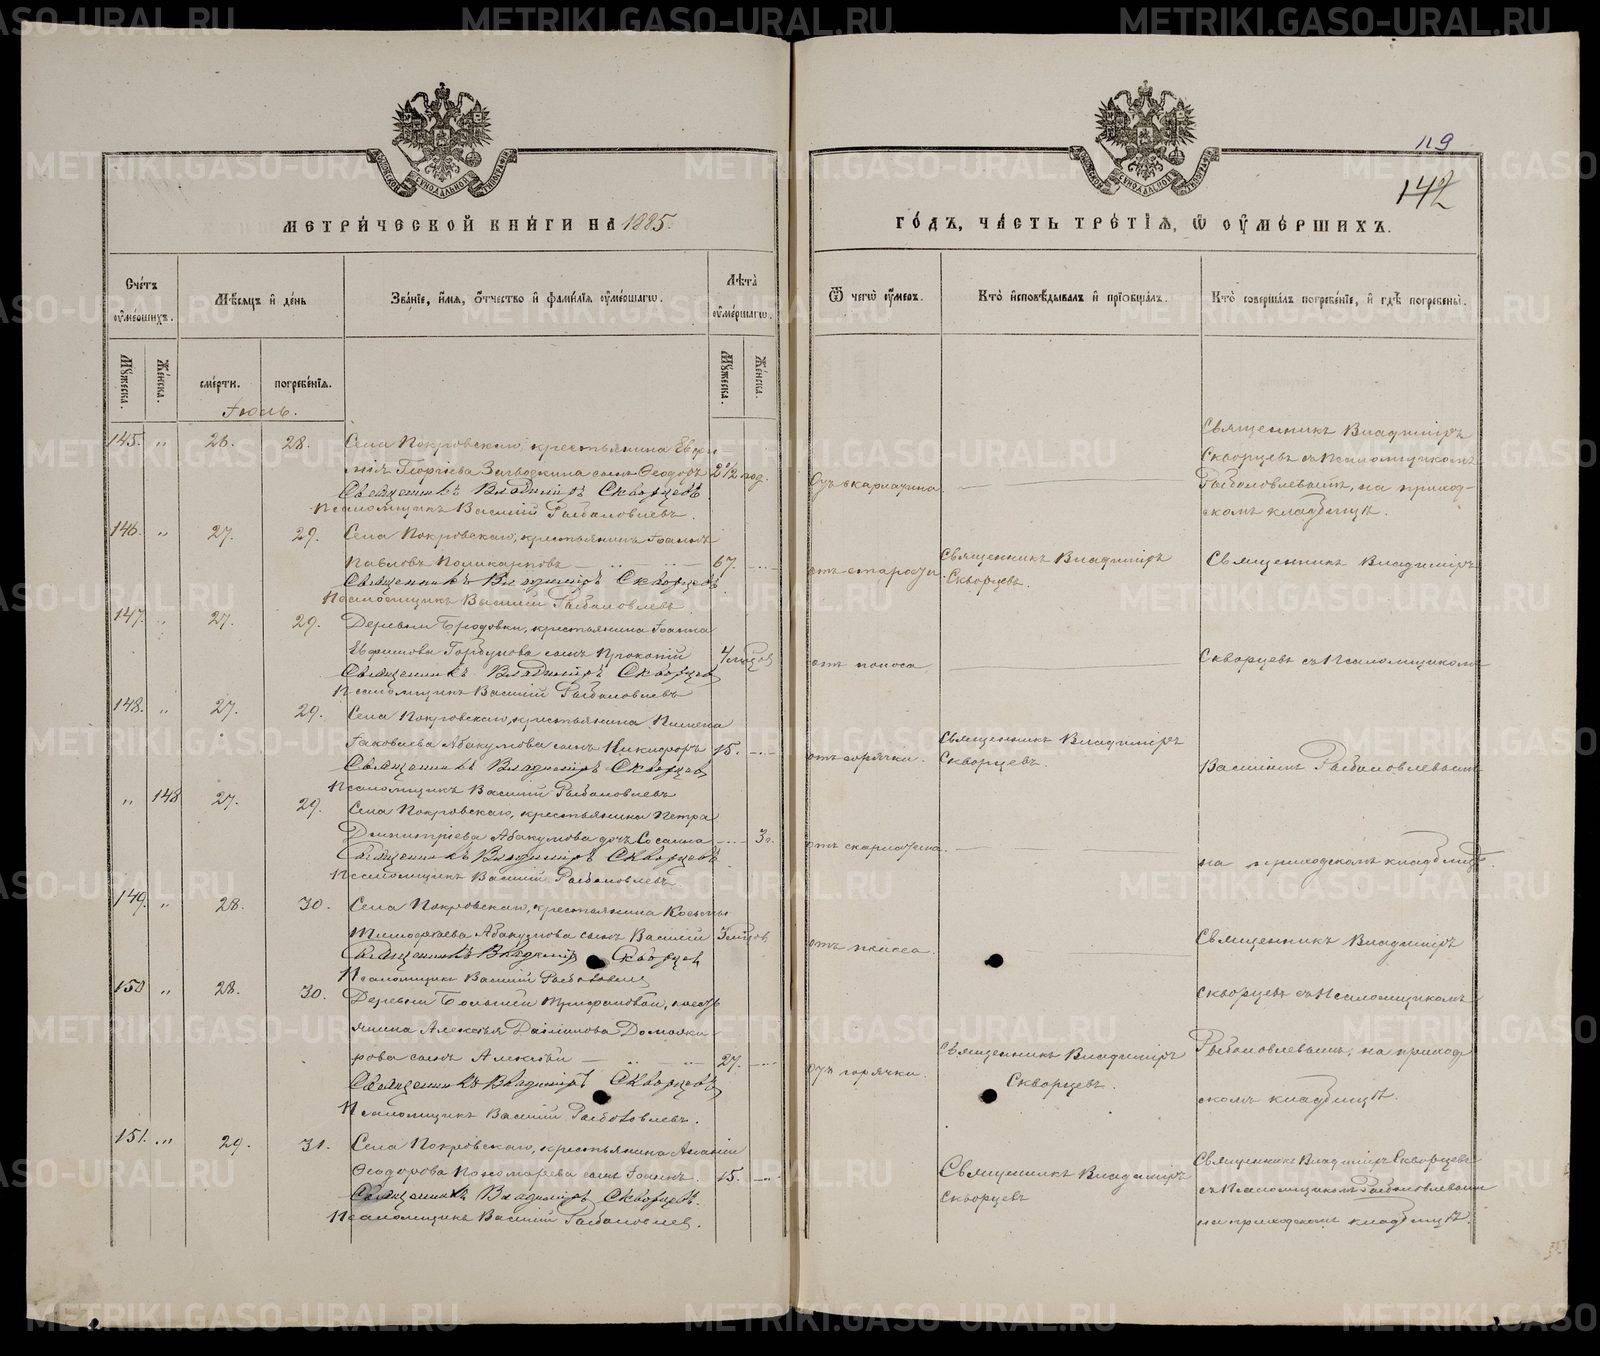 119
142
МЕТРИ́ЧЕСКОЙ КНИ́ГИ НА 1885.
ГО́ДЪ, ЧА́СТЬ ТРЕ́ТІѦ, Ѿ ОУМЕ́РШИХЪ.
Сче́тъ оумершихъ.
Мѣсѧцъ и де́нь
Зва́ніе, и́мѧ, о́тчество и фами́лїѧ оуме́ршагѡ.
Лѣта̀ оуме́ршагѡ.
Ѿ чегѡ̀ оу́меръ.
Кто̀ исповѣ́дывалъ и прїобща́лъ.
Кто̀ соверша́лъ погребе́нїе, и гдѣ̀ погребены̀.
Мꙋ́жеска.
Же́нска.
сме́рти.
погребе́нїѧ.
Мꙋ́жеска.
Же́нска.
Іюль.
145. „ 26. 28. Села Покровскаго, крестьянина Евфи
мія Георгіева Загводкина сынъ Ѳеодоръ 2 1/2 год.
Священникъ Владиміръ Скворцевъ.
Псаломщикъ Василій Рыболовлевъ.
отъ скарлатина
Священникъ Владиміръ
Скворцевъ съ Псаломщикомъ
Рыболовлевымъ, на приход-
скомъ кладбищѣ.
146. „ 27. 29. Села Покровскаго, крестьянинъ Іоаннъ
Павловъ Поликарповъ 67.
Священникъ Владиміръ Скворцевъ
Псаломщикъ Василій Рыболовлевъ
отъ старости
Священникъ Владиміръ
Скворцевъ.
Священникъ Владиміръ
147. „ 27. 29. Деревни Бродовки, крестьянина Іоанна
Евфимова Горбунова сынъ Прокопій 4 мѣсцов
Священникъ Владиміръ Скворцев
Псаломщикъ Василій Рыболовлевъ
отъ поноса
Скворцевъ съ Псаломщикомъ
148. „ 27. 29. Села Покровскаго, крестьянина Пимена
Іаковлева Абакумова сынъ Никифоръ 15.
Священникъ Владиміръ Скворцев
Псаломщикъ Василій Рыболовлевъ
отъ горячки.
Священникъ Владиміръ
Скворцевъ.
Василіемъ Рыболовлевымъ
„ 148 27. 29. Села Покровскаго, крестьянина Петра
Димитріева Абакумова дочь Сосанна 3 г.
Священникъ Владиміръ Скворцевъ
Псаломщикъ Василій Рыболовлевъ
отъ скарлатина.
на приходскомъ кладбищѣ.
149. „ 28. 30. Села Покровскаго, крестьянина Косьмы
Тимофеева Абакумова сынъ Василій 3 мѣсцов
Священникъ Владиміръ Скворцев
Псаломщикъ Василій Рыболовлев
отъ поноса.
Священникъ Владиміръ
150 „ 28. 30. Деревни Большой Трифановой, кресть
янина Алексѣя Даніилова Доможи
рова сынъ Алексѣй 27.
Священникъ Владиміръ Скворцевъ
Псаломщикъ Василій Рыболовлевъ.
отъ горячки.
Священникъ Владиміръ
Скворцевъ.
Скворцевъ съ Псаломщикомъ
Рыболовлевымъ, на приход
скомъ кладбищѣ.
151. „ 29. 31. Села Покровскаго, крестьянина Ананіи
Ѳеодорова Пономарева сынъ Іоаннъ. 15.
Священникъ Владиміръ Скворцевъ.
Псаломщикъ Василій Рыболовлев.
Священникъ Владиміръ
Скворцевъ
Священникъ Владиміръ Скворцевъ
съ Псаломщикомъ Рыболовлевымъ
на приходскомъ кладбищѣ.
METRIKI.GASO-URAL.RU